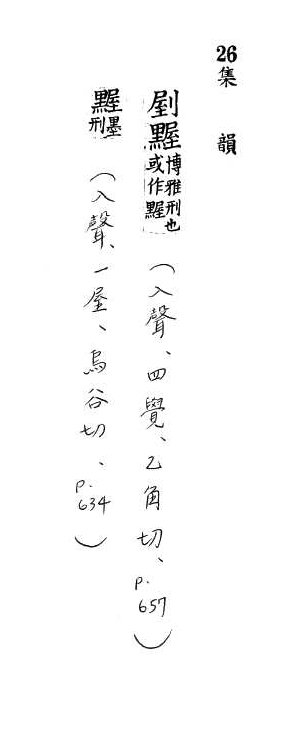 26
集韻
剭䵠博雅刑也或作䵠（入聲、四覺、乙角切、p.657）
䵠墨刑（入聲、一屋、烏谷切、p.634）